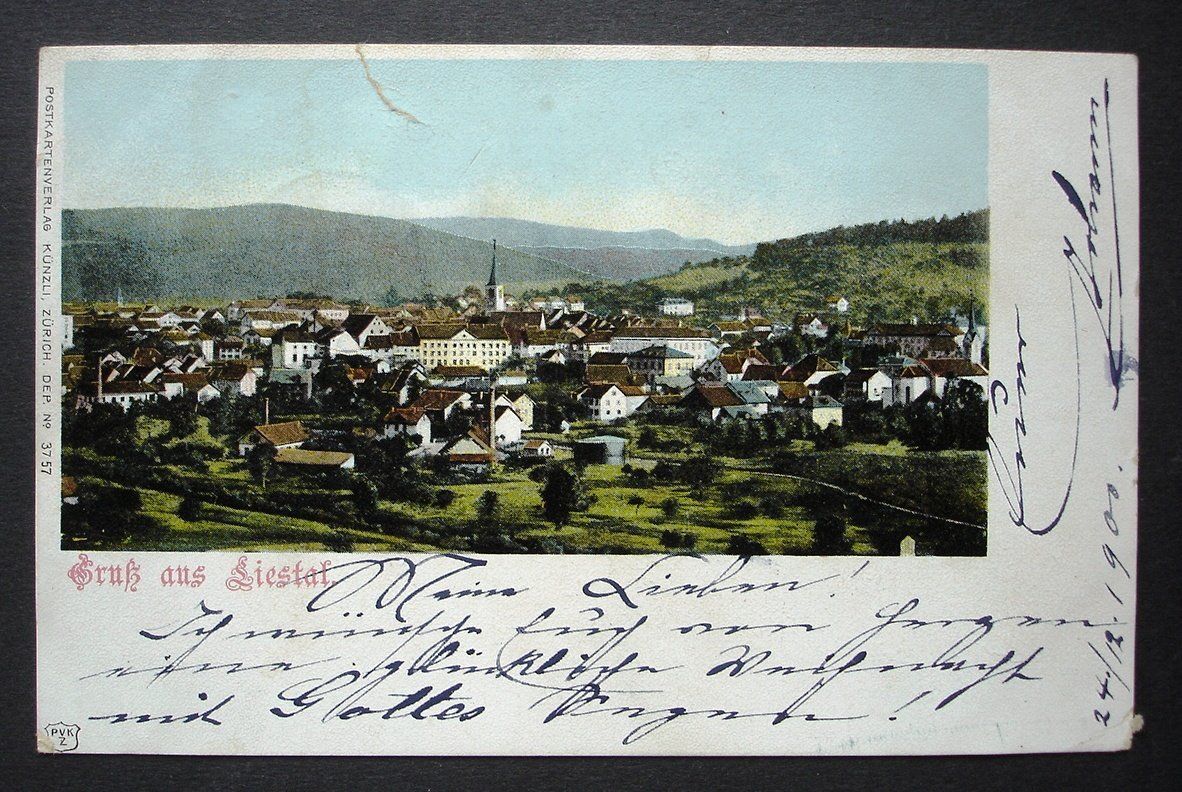 POSTKARTENVERLAG KÜNZLI, ZÜRICH. DEP. Nº 3757
Gruß aus Liestal.
Meine Lieben!
Ich wünsche Euch von Herzen
eine glückliche Weihnacht
mit Gottes Segen!
24./12.1900.
PVK
Z